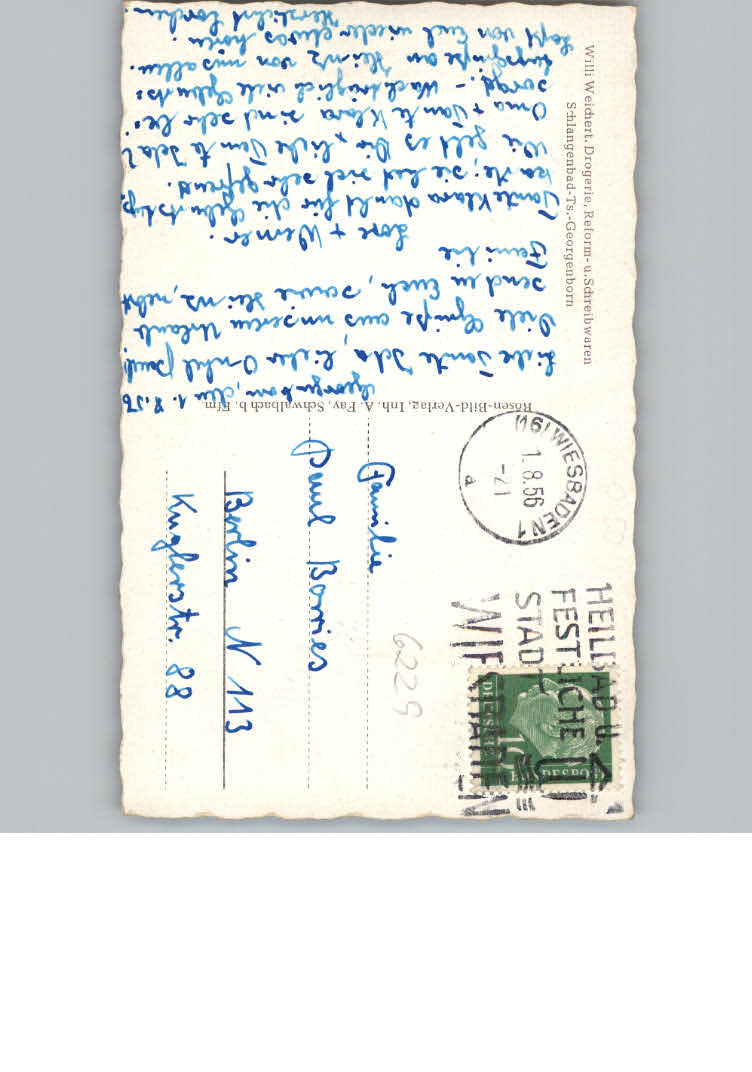 Willi Weichert, Drogerie, Reform- u. Schreibwaren
Schlangenbad-Ts.-Georgenborn
Georgenborn, den 1.8.56
Liebe Tante Ida, lieber Onkel Paul!
Viele Grüße aus unserem Urlaub
senden Euch, sowie Heinz, nebst
Familie
Lore + Werner.
Tante Klara dankt für die Geburtstags-
karte; sie hat sich sehr gefreut.
Wie geht es Dir, liebe Tante Ida?
Oma + Tante Klara sind sehr be-
sorgt. – Nachträglich viele Geburts-
tagsgrüße an Heinz von uns allen.
Laßt von Euch wieder etwas hören.
Herzlichst Lorchen
Rosen-Bild-Verlag, Inh. A. Fay, Schwalbach b. Ffm.
(16) WIESBADEN 1
1.8.56
-21
a
HEILBAD U.
FESTLICHE
STADT
WIESBADEN
10
6229
Familie
Paul Borries
Berlin N 113
Kuglerstr. 88